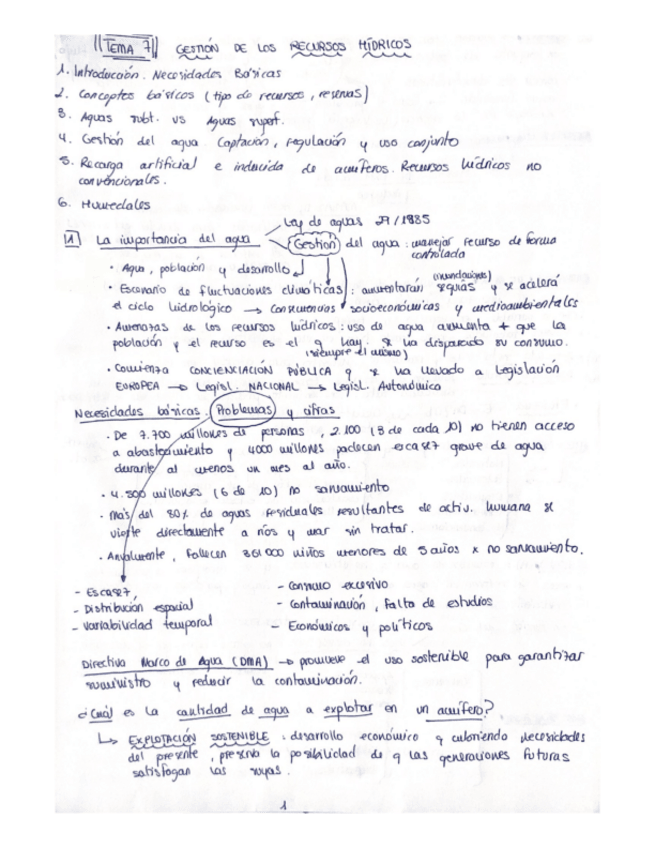 TEMA 7 GESTIÓN DE LOS RECURSOS HÍDRICOS
1. Introducción. Necesidades Básicas
2. Conceptos básicos (tipo de recursos, reservas)
3. Aguas subt. vs Aguas superf.
4. Gestión del agua. Captación, regulación y uso conjunto
5. Recarga artificial e inducida de acuíferos. Recursos hídricos no
convencionales.
6. Humedales
Ley de aguas 29/1985
1 La importancia del agua Gestión del agua: manejar recurso de forma
controlada
· Agua, población y desarrollo
(inundaciones)
· Escenario de fluctuaciones climáticas: aumentarán sequías y se acelerá
el ciclo hidrológico → Consecuencias socioeconómicas y medioambientales
· Amenazas de los recursos hídricos: uso de agua aumenta + que la
población y el recurso es el q hay. Se ha disparado su consumo.
(siempre el mismo)
· Comienza CONCIENCIACIÓN PÚBLICA q se ha llevado a Legislación
EUROPEA → Legisl. NACIONAL → Legisl. Autonómica
Necesidades básicas. Problemas y cifras
· De 7.700 millones de personas, 2.100 (3 de cada 10) no tienen acceso
a abastecimiento y 4000 millones padecen escasez grave de agua
durante al menos un mes al año.
· 4.500 millones (6 de 10) no saneamiento
· Más del 80% de aguas residuales resultantes de activ. humana se
vierte directamente a ríos y mar sin tratar.
· Anualmente, fallecen 361 000 niños menores de 5 años x no saneamiento.
- Escasez,
- Distribución espacial
- Variabilidad temporal
- Consumo excesivo
- Contaminación, falta de estudios
- Económicos y políticos
Directiva Marco de Agua (DMA) → promueve el uso sostenible para garantizar
suministro y reducir la contaminación.
¿Cuál es la cantidad de agua a explotar en un acuífero?
↳ EXPLOTACIÓN SOSTENIBLE: desarrollo económico q cubriendo necesidades
del presente, preserva la posibilidad de q las generaciones futuras
satisfagan las suyas.
1